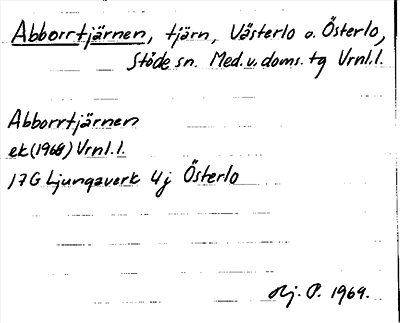 Abborrtjärnen, tjärn, Västerlo o. Österlo,
Stöde sn. Med. v. doms. tg Vrnl.l.
Abborrtjärnen
ek (1968) Vrnl.l.
17G Ljungaverk 4j Österlo
Hj. P. 1969.